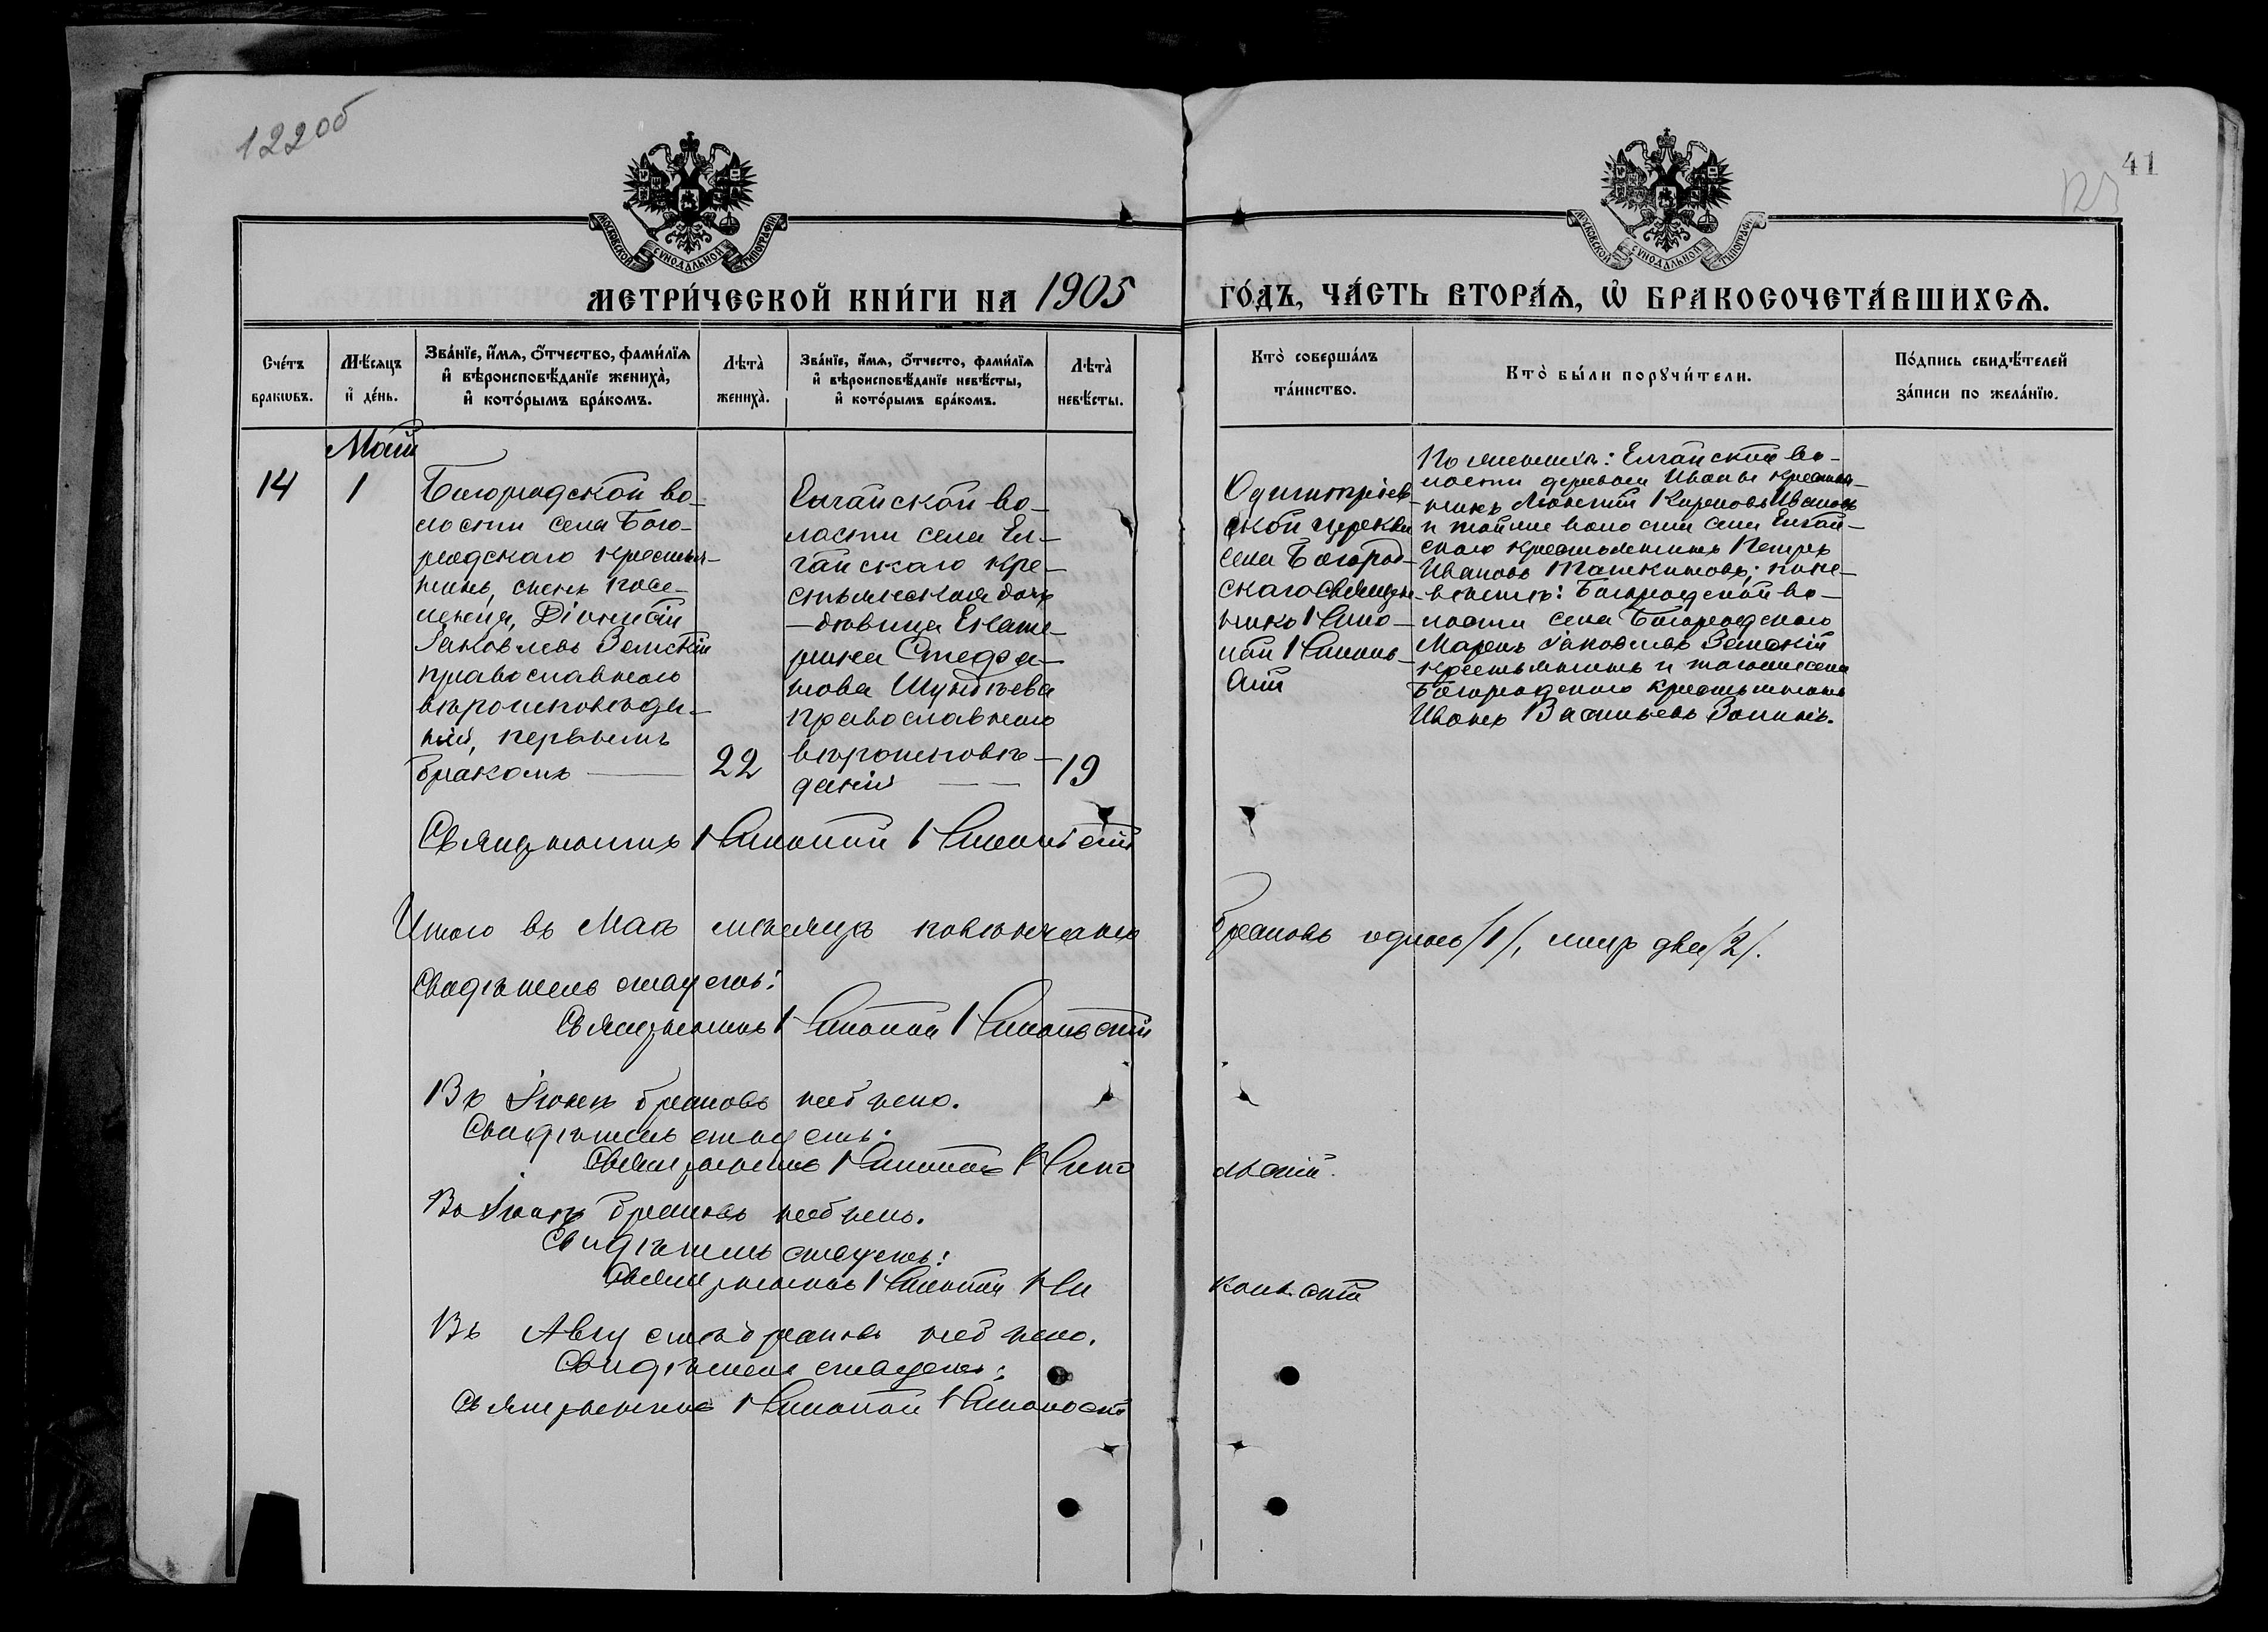 122 об
41
123
МОСКОВСКОЙ СѴНОДАЛЬНОЙ ТИПОГРАФІИ
МОСКОВСКОЙ СѴНОДАЛЬНОЙ ТИПОГРАФІИ
МЕТРИ́ЧЕСКОЙ КНИ́ГИ НА 1905 ГО́ДЪ, ЧА́СТЬ ВТОРА́Ѧ, Ѽ БРАКОСОЧЕТА́ВШИХСѦ.
Сче́тъ
бракѡвъ.
Мѣ́сѧцъ
и҆ де́нь.
Зва́нїе, и҆́мѧ, о҆́тчество, фами́лїѧ
и҆ вѣроисповѣ́данїе жениха̀,
и҆ кото́рымъ бра́комъ.
Лѣта̀
жениха̀.
Зва́нїе, и҆́мѧ, о҆́тчесто, фами́лїѧ
и҆ вѣроисповѣ́данїе невѣ́сты,
и҆ кото́рымъ бра́комъ.
Лѣта̀
невѣ́сты.
Кто̀ соверша́лъ
та́инство.
Кто̀ бы́ли порꙋчи́тели.
По́дпись свидѣ́телей
за́писи по жела́нїю.
Май
14
1
Богородской во-
лости села Бого-
родскаго крестья-
нинъ, сынъ посе-
ленца, Діонисій
Іаковлевъ Земскій
православнаго
вѣроисповѣда-
нія, первымъ
бракомъ
22
Елгайской во-
лости села Ел-
гайскаго кре-
стьянская дочь
-дѣвица Екате-
рина Стефа-
нова Шундѣева
православнаго
вѣроисповѣ-
данія
19
Одигитріев-
ской церкви
села Богород-
скаго священ-
никъ
По женихѣ: Елгайской во-
лости деревни Ивановъ
и той же волости села Елгай-
скаго крестьянинъ Петръ
Ивановъ Ташкиновъ; по не-
вѣстѣ: Богородской во-
лости села Богородскаго
Маркъ Іаковлевъ Земскій
крестьянинъ и того же села
Богородскаго крестьянинъ
Иванъ Васильевъ Зоринъ.
Священникъ
Итого въ Маѣ мѣсяцѣ повѣнчано браковъ одинъ /1/, лицъ два /2/.
Свидѣтельствуетъ:
Священникъ
Въ Іюнѣ браковъ не было.
Свидѣтельствуетъ:
Священникъ
Въ Іюлѣ браковъ не было.
Свидѣтельствуетъ:
Священникъ
Въ Августѣ браковъ не было.
Свидѣтельствуетъ:
Священникъ